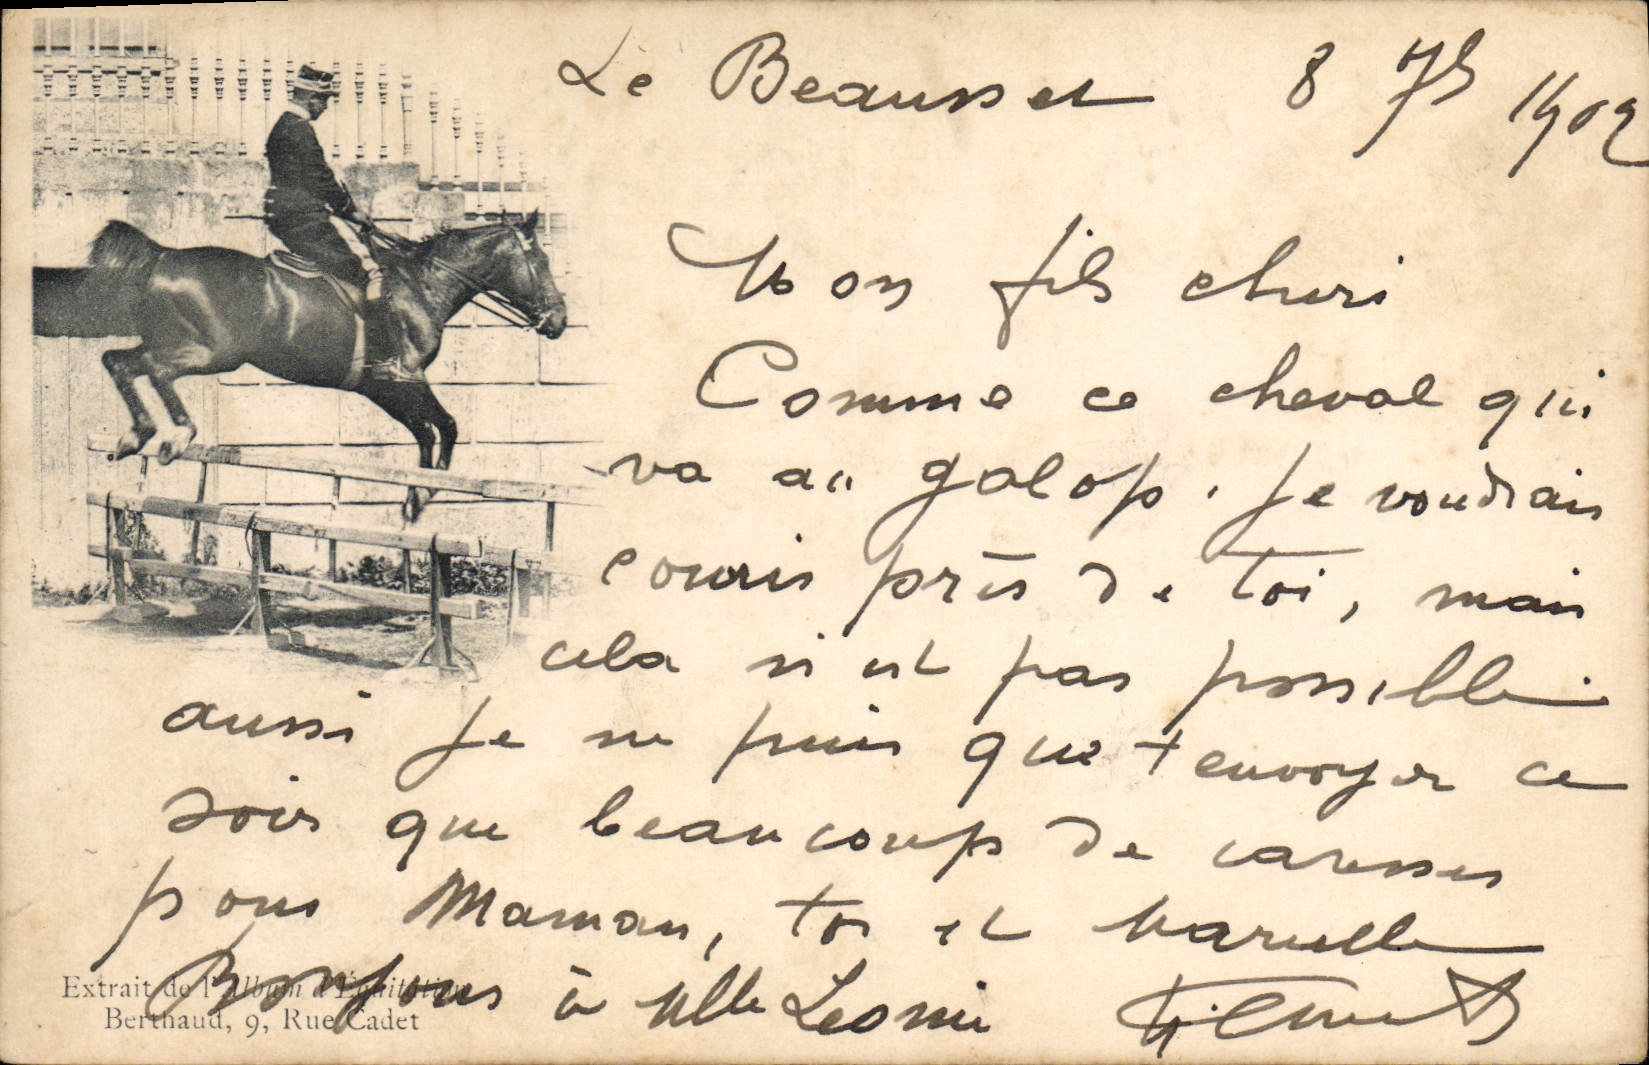 Le Beausset 8 7bre 1902
Mon fils cheri
Comme ce cheval qui
va au galop. Je voudrais
courir près de toi, mais
cela n'est pas possible
aussi je ne puis que t'envoyer ce
soir que beaucoup de caresses
pour Maman, toi et Marcelle
Bonjour à Mlle Leonie
Extrait de l'Album d'Équitation
Berthaud, 9, Rue Cadet